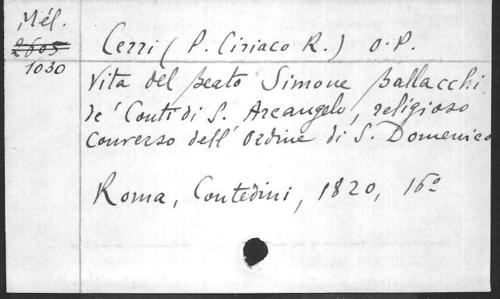 Mél.
2605
1030
Cerri (P. Ciriaco R.) O.P.
Vita del Beato Simone Ballacchi
de' Conti di S. Arcangelo, religioso
converso dell' Ordine di S. Domenico
Roma, Contedini, 1820, 16º